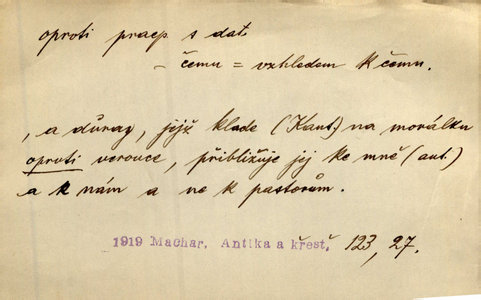 oproti praep s dat.
– čemu = vzhledem k čemu.
, a důraz, jejž klade (Kant) na morálku
oproti věrouce, přibližuje jej ke mně (aut.)
a k nám a ne k pastorům.
1919 Machar, Antika a křesť. 123, 27.